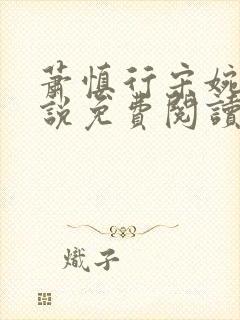 蕭慎行宋婉
說免費閱讀
熾子